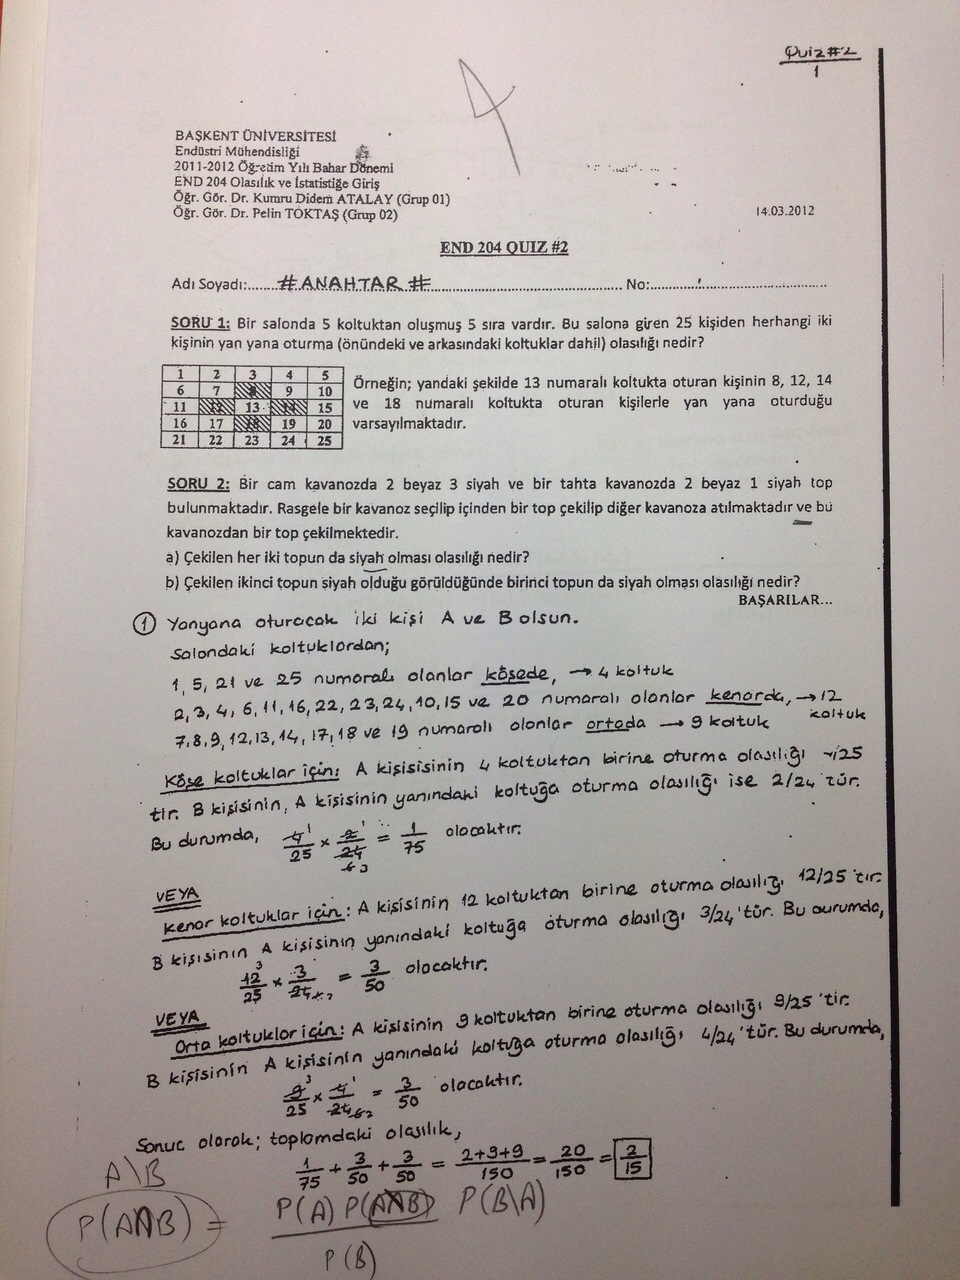 Quiz #2
1
BAŞKENT ÜNİVERSİTESİ
Endüstri Mühendisliği
2011-2012 Öğretim Yılı Bahar Dönemi
END 204 Olasılık ve İstatistiğe Giriş
Öğr. Gör. Dr. Kumru Didem ATALAY (Grup 01)
Öğr. Gör. Dr. Pelin TOKTAŞ (Grup 02)
14.03.2012
END 204 QUIZ #2
Adı Soyadı:.......#ANAHTAR #.......... No:..........
SORU 1: Bir salonda 5 koltuktan oluşmuş 5 sıra vardır. Bu salona giren 25 kişiden herhangi iki
kişinin yan yana oturma (önündeki ve arkasındaki koltuklar dahil) olasılığı nedir?
1 2 3 4 5
6 7 8 9 10
11 12 13 14 15
16 17 18 19 20
21 22 23 24 25
Örneğin; yandaki şekilde 13 numaralı koltukta oturan kişinin 8, 12, 14
ve 18 numaralı koltukta oturan kişilerle yan yana oturduğu
varsayılmaktadır.
SORU 2: Bir cam kavanozda 2 beyaz 3 siyah ve bir tahta kavanozda 2 beyaz 1 siyah top
bulunmaktadır. Rasgele bir kavanoz seçilip içinden bir top çekilip diğer kavanoza atılmaktadır ve bu
kavanozdan bir top çekilmektedir.
a) Çekilen her iki topun da siyah olması olasılığı nedir?
b) Çekilen ikinci topun siyah olduğu görüldüğünde birinci topun da siyah olması olasılığı nedir?
BAŞARILAR...
① Yanyana oturacak iki kişi A ve B olsun.
Salondaki koltuklardan;
1, 5, 21 ve 25 numaralı olanlar köşede, → 4 koltuk
2, 3, 4, 6, 11, 16, 22, 23, 24, 10, 15 ve 20 numaralı olanlar kenarda, → 12 koltuk
7, 8, 9, 12, 13, 14, 17, 18 ve 19 numaralı olanlar ortada → 9 koltuk
Köşe koltuklar için: A kişisisinin 4 koltuktan birine oturma olasılığı 4/25
tir. B kişisinin, A kişisinin yanındaki koltuğa oturma olasılığı ise 2/24 'tür.
Bu durumda, 4/25 × 2/24 = 1/75 olacaktır.
VEYA
Kenar koltuklar için: A kişisinin 12 koltuktan birine oturma olasılığı 12/25 'tir.
B kişisinin A kişisinin yanındaki koltuğa oturma olasılığı 3/24 'tür. Bu durumda,
12/25 × 3/24 = 3/50 olacaktır.
VEYA
Orta koltuklar için: A kişisinin 9 koltuktan birine oturma olasılığı 9/25 'tir.
B kişisinin A kişisinin yanındaki koltuğa oturma olasılığı 4/24 'tür. Bu durumda,
9/25 × 4/24 = 3/50 olacaktır.
Sonuç olarak; toplamdaki olasılık,
1/75 + 3/50 + 3/50 = 2+9+9/150 = 20/150 = 2/15
A\B
P(A∩B) = P(A) P(B\A)
P(B)